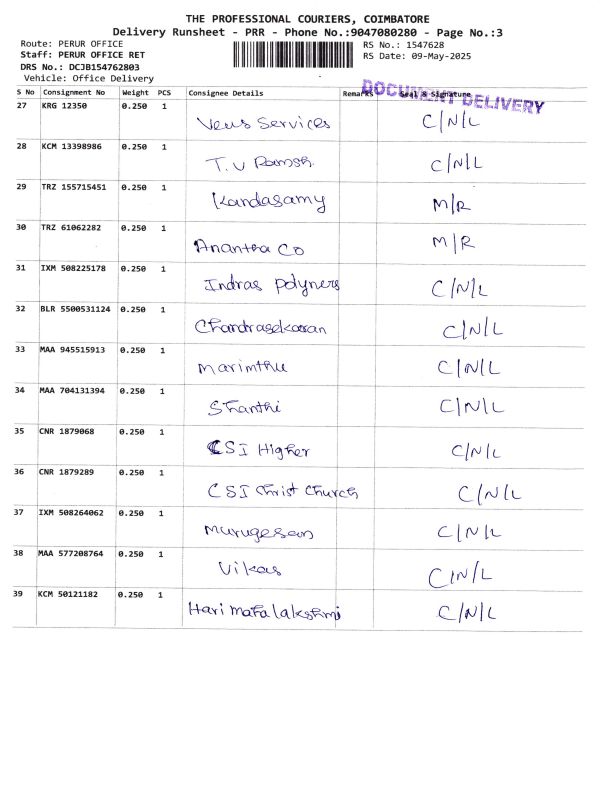 THE PROFESSIONAL COURIERS, COIMBATORE
Delivery Runsheet - PRR - Phone No.:9047080280 - Page No.:3
Route: PERUR OFFICE
RS No.: 1547628
Staff: PERUR OFFICE RET
RS Date: 09-May-2025
DRS No.: DCJB154762803
Vehicle: Office Delivery
DOCUMENT DELIVERY
S No Consignment No Weight PCS Consignee Details Remarks Seal & Signature
27 KRG 12350 0.250 1 Venus Services C/N/L
28 KCM 13398986 0.250 1 T.V Ramesh C/N/L
29 TRZ 155715451 0.250 1 Kandasamy M/R
30 TRZ 61062282 0.250 1 Anantha Co M/R
31 IXM 508225178 0.250 1 Indras Polyners C/N/L
32 BLR 5500531124 0.250 1 Chandrasekaran C/N/L
33 MAA 945515913 0.250 1 Marimthu C/N/L
34 MAA 704131394 0.250 1 Shanthi C/N/L
35 CNR 1879068 0.250 1 CSI Higher C/N/L
36 CNR 1879289 0.250 1 CSI Christ Church C/N/L
37 IXM 508264062 0.250 1 Murugesan C/N/L
38 MAA 577208764 0.250 1 Vikas C/N/L
39 KCM 50121182 0.250 1 Hari mahalakshmi C/N/L